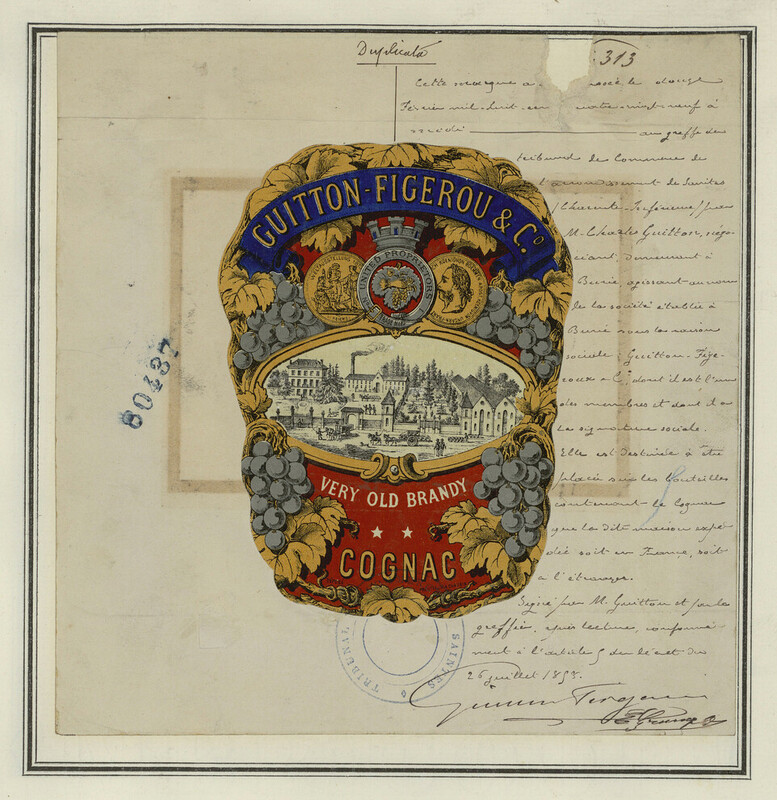 Duplicata
313
Cette marque a déposée le douze
Février mil huit cent quatre-vingt-neuf à
midi au greffe du
tribunal de Commerce de
l'arrondissement de Saintes
(Charente-Inférieure) par
M. Charles Guitton, négo-
ciant, demeurant à
Burie agissant au nom
de la société établie à
Burie sous la raison
sociale Guitton-Fige-
roux & Cie, dont il est l'un
des membres et dont il a
la signature sociale.
Elle est destinée à être
placée sur les bouteilles
contenant le Cognac
que la dite maison expé-
die soit en France, soit
à l'étranger.
Signé par M. Guitton et par le
greffier, après lecture, conformé-
ment à l'article 5 du décret du
26 juillet 1858.
GUITTON-FIGEROU & Co.
UNITED PROPRIETORS
VERY OLD BRANDY
COGNAC
80487
TRIBUNAL
SAINTES